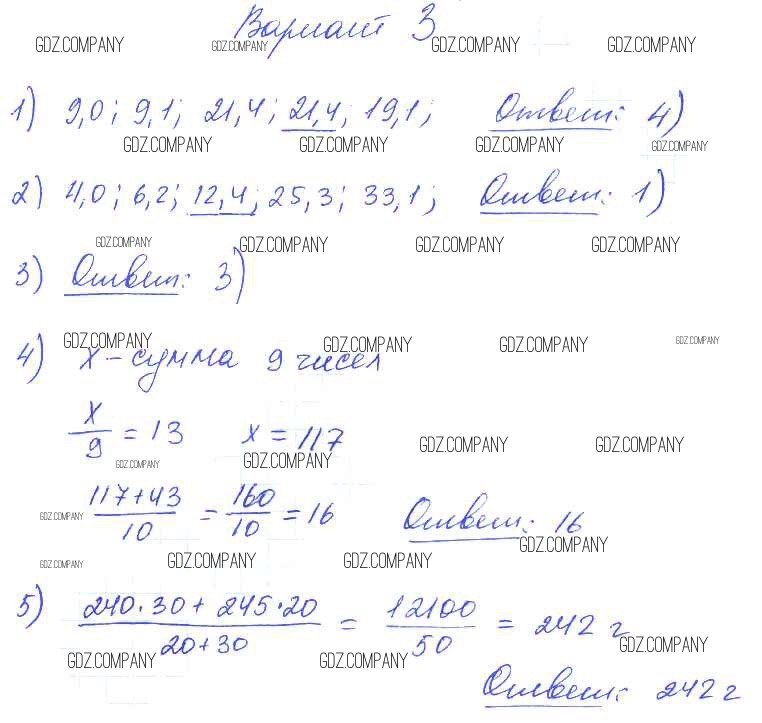 Вариант 3
GDZ.COMPANY GDZ.COMPANY GDZ.COMPANY GDZ.COMPANY
1) 9,0; 9,1; 21,4; 21,4; 19,1; Ответ: 4)
GDZ.COMPANY GDZ.COMPANY GDZ.COMPANY GDZ.COMPANY
2) 4,0; 6,2; 12,4; 25,3; 33,1; Ответ: 1)
GDZ.COMPANY GDZ.COMPANY GDZ.COMPANY GDZ.COMPANY
3) Ответ: 3)
GDZ.COMPANY GDZ.COMPANY GDZ.COMPANY GDZ.COMPANY
4) x – сумма 9 чисел
x/9 = 13 x = 117
GDZ.COMPANY GDZ.COMPANY GDZ.COMPANY GDZ.COMPANY
(117+43)/10 = 160/10 = 16 Ответ: 16
GDZ.COMPANY GDZ.COMPANY
GDZ.COMPANY GDZ.COMPANY GDZ.COMPANY
5) (240·30 + 245·20)/(20+30) = 12100/50 = 242 г
GDZ.COMPANY GDZ.COMPANY GDZ.COMPANY
Ответ: 242 г